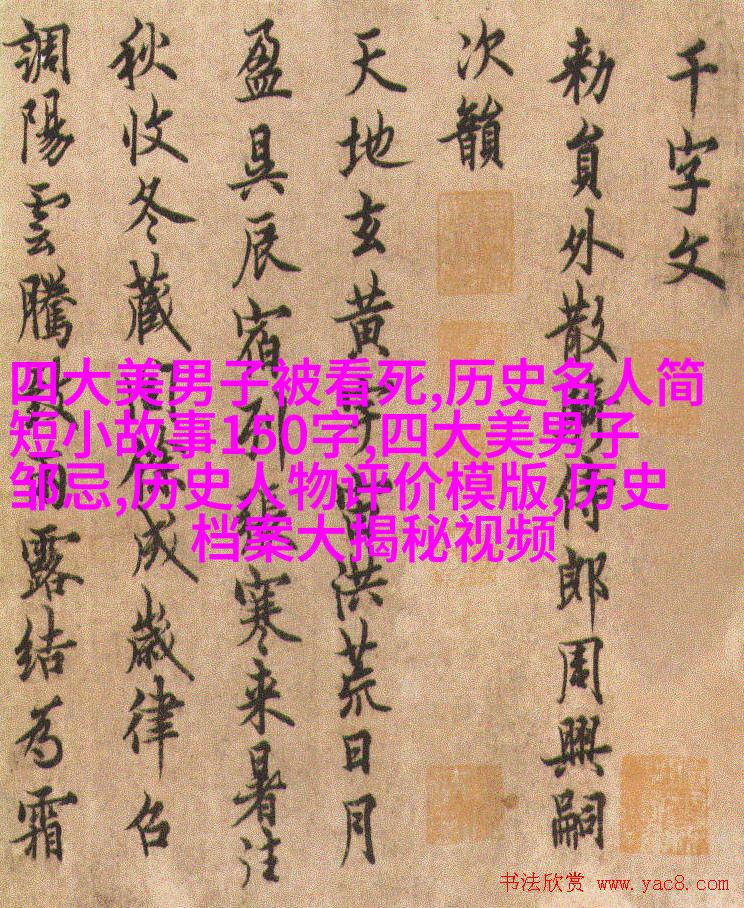 千字文
勑員外散侍郎周興嗣
次韻
天地玄黃洪荒日月
盈昃辰宿列寒来暑往
秋收冬藏成歲律召
調陽雲騰露結為霜
四大美男子被看死,历史名人简
短小故事150字,四大美男子
邹忌,历史人物评价模版,历史
档案大揭秘视频
书法欣赏 www.yac8.com